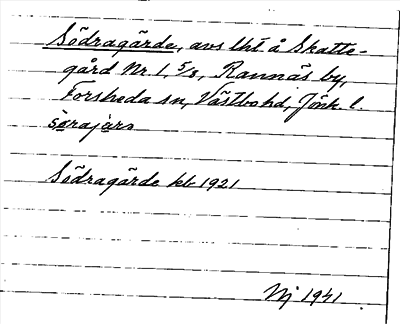 Södragärde, avs lht å Skatte-
gård Nr 1, 5/8, Rannäs by,
Forsheda sn, Västbo hd, Jönk. l.
sørajæra
Södragärde kb 1921
Nj 1941